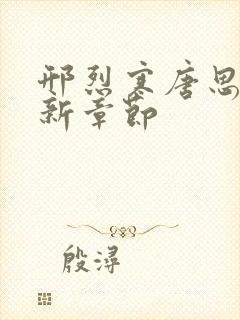 邢烈寒唐思
新章节
殷浔